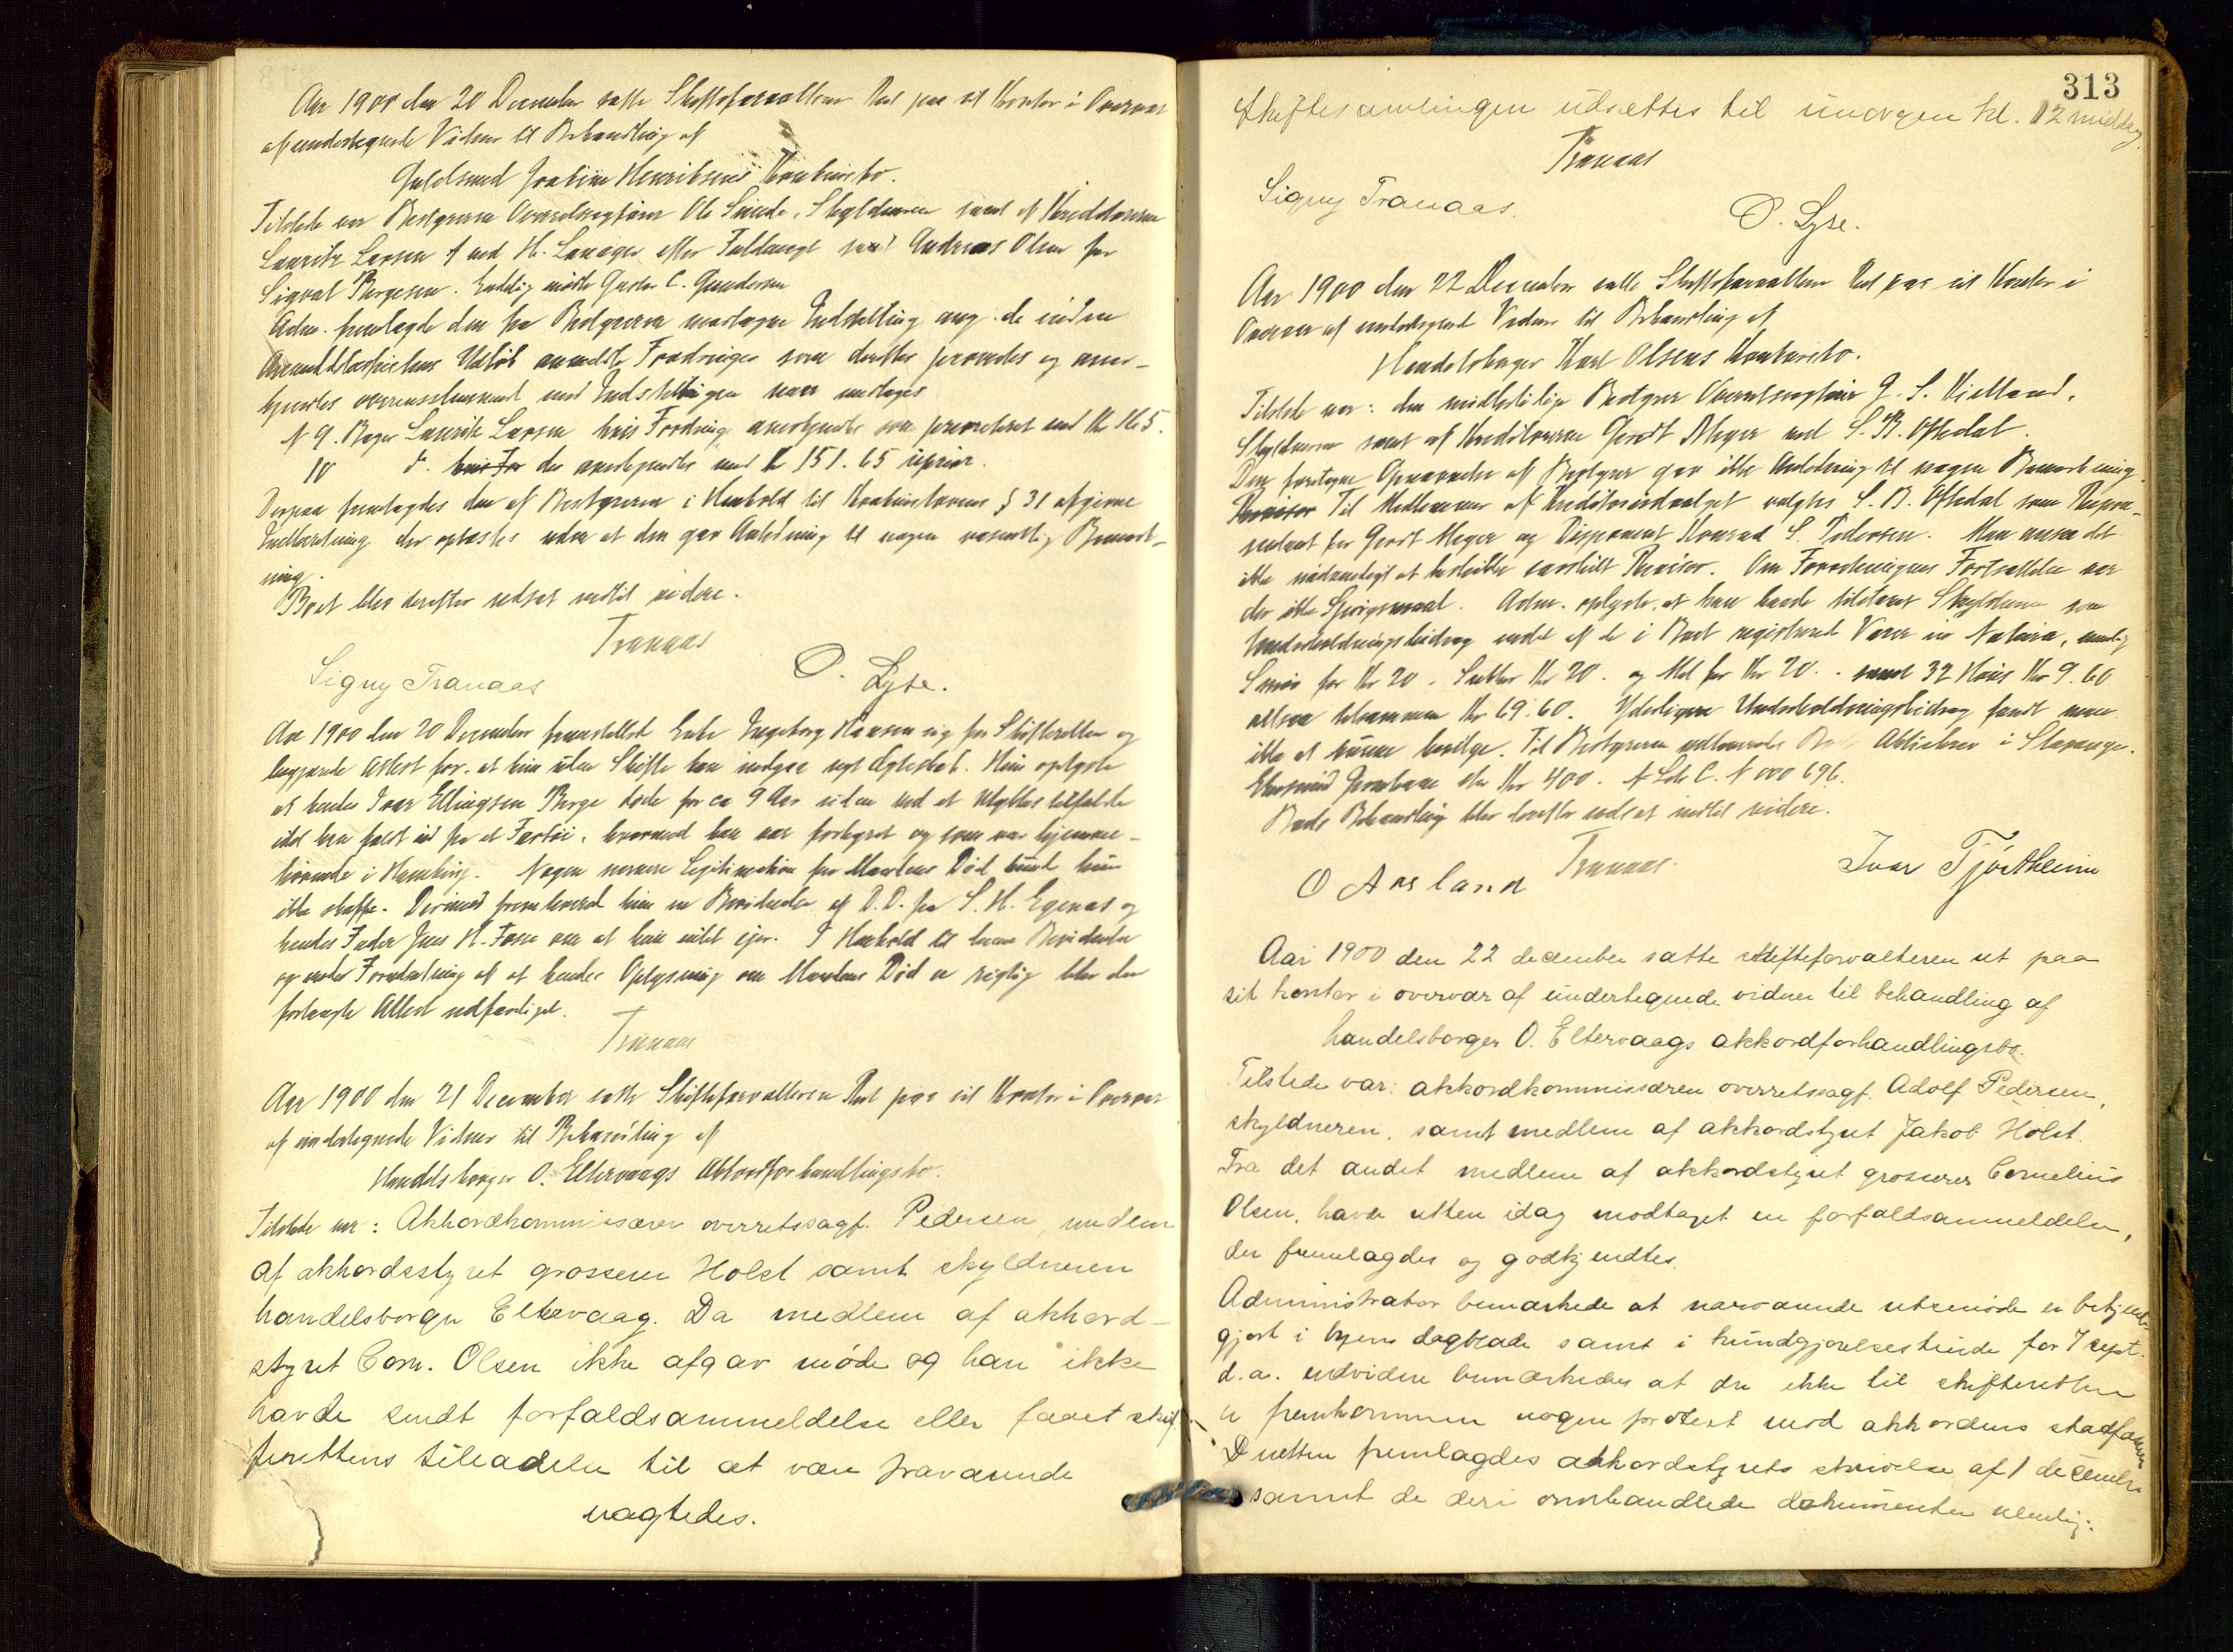 Aar 1900 den 20 December satte Skifteforvalteren Ret paa sit Kontor i Overvær
af undertegnede Vidner til Behandling af
Guldsmed Joakim Henriksens Konkursbo.
Tilstede var Bestyreren Overretssagfører Ole Smede, Skyldneren samt af Kreditorerne
Lauritz Larsen ved H. efter Fuldmagt samt Andreas Olsen for
Sigval Bergesen. Endelig mødte Gustav C. Gundersen
Adm. fremlagde den fra Bestyreren modtagne Indstilling ang. de inden
Udløb anmeldte Fordringer som derefter prøvedes og aner-
kjendtes overensstemmend med Indstillingen
N 9. Bager Lauritz Larsen hvis Fordring anerkjendtes som prioriteret med Kr 165.
10 d. der anerkjendtes med Kr 151.65 uprior.
Derpaa fremlagdes den af Bestyreren i Henhold til Konkurslovens § 31 afgivne
Indberetning der oplæstes uden at den gav Anledning til nogen væsentlig Bemærk-
ning.
Boet blev derefter udsat indtil videre.
Tranaas
Signy Tranaas O. Lyse.
Aar 1900 den 20 December fremstillede Enke Ingeborg Hansen sig for Skifteretten og
begjærede Attest for, at hun uden Skifte kan indgaa nyt Ægteskab. Hun oplyste
at hendes Ivar Ellingsen Berge døde for ca 9 Aar siden ved et Ulykkestilfælde
idet han faldt ud fra et Fartøi, hvormed han var forhyret og som var hjemme-
hørende i Hamburg. Nogen nærmere Legitimation for Mandens Død kunde hun
ikke skaffe. Derimod fremleverede hun en Bevidnelse af D.D. fra S. H. Egenæs og
hendes Fader Jens H. Fosse om at hun intet ejer. I Henhold til denne Bevidnelse
og under Forudsætning af at hendes Oplysning om Mandens Død er rigtig blev den
forlangte Attest udfærdiget.
Tranaas
Aar 1900 den 21 December satte Skifteforvalteren Ret paa sit Kontor i Overvær
af undertegnede Vidner til Behandling af
Handelsborger O. Eltervaags Akkordforhandlingsbo.
Tilstede var: Akkordkommissæren overretssagf. Pedersen, medlem
af akkordsstyret grosserer Holst samt skyldneren
handelsborger Eltervaag. Da medlem af akkord-
styret Corn. Olsen ikke afgav møde og han ikke
havde sendt forfaldsanmeldelse eller faaet skif-
terettens tilladelse til at være fraværende
vagtedes.
313
Skiftesamlingen udsættes til imorgen kl. 12 middag.
Tranaas
Signy Tranaas. O. Lyse.
Aar 1900 den 22 December satte Skifteforvalteren Ret paa sit Kontor i
Overvær af undertegnede Vidner til Behandling af
Handelsborger Karl Olsens Konkursbo.
Tilstede var: den midlertidige Bestyrer Overretssagfører G. S. Kielland,
Skyldneren samt af Kreditorerne Gerdt Meyer ved S. B. Oftedal.
Den foretagne Opnævnelse af Bestyrer gav ikke Anledning til nogen Bemærkning.
Revisor Til Medlemmer af Kreditorudvalget valgtes S. B. Oftedal som Repræ-
sentant for Gerdt Meyer og Disponent Konrad S. Pedersen. Man ansaa det
ikke nødvendigt at beskikke særskilt Revisor. Om Forretningens Fortsættelse var
der ikke Spørgsmaal. Adm. oplyste, at han havde tilstaaet Skyldneren som
Underholdningsbidrag endel af de i Boet registrerede Varer in Natura, nemlig
Smør for Kr 20. Sukker Kr 20. og Mel for Kr 20. samt 32 Høns Kr 9.60
altsaa tilsammen Kr 69.60. Yderligere Underholdningsbidrag fandt man
ikke at kunne bevilge. Til Bestyreren udleveredes Aktiebrev i Stavanger-
Ekersund Jernbane stor Kr 400. Litr C. N 000696.
Boets Behandling blev derefter udsat indtil videre.
O Aasland Tranaas. Ivar Tjøstheim
Aar 1900 den 22 december satte skifteforvalteren ret paa
sit kontor i overvær af undertegnede vidner til behandling af
handelsborger O. Eltervaags akkordforhandlingsbo.
Tilstede var: akkordkommissæren overretssagf. Adolf Pedersen,
skyldneren, samt medlem af akkordstyret Jakob Holst.
Fra det andet medlem af akkordstyret grosserer Cornelius
Olsen, havde retten idag modtaget en forfaldsanmeldelse,
der fremlagdes og godkjendtes.
Administrator bemærkede at nærværende retsmøde er bekjendt-
gjort i byens dagblade samt i kundgjørelsestidende for 7 sept.
d.a. Endvidere bemærkedes at der ikke til skifteretten
er fremkommen nogen protest mod akkordens stadfæstelse
I retten fremlagdes akkordstyrets skrivelse af 1 december
samt de deri omhandlede dokumenter nemlig: